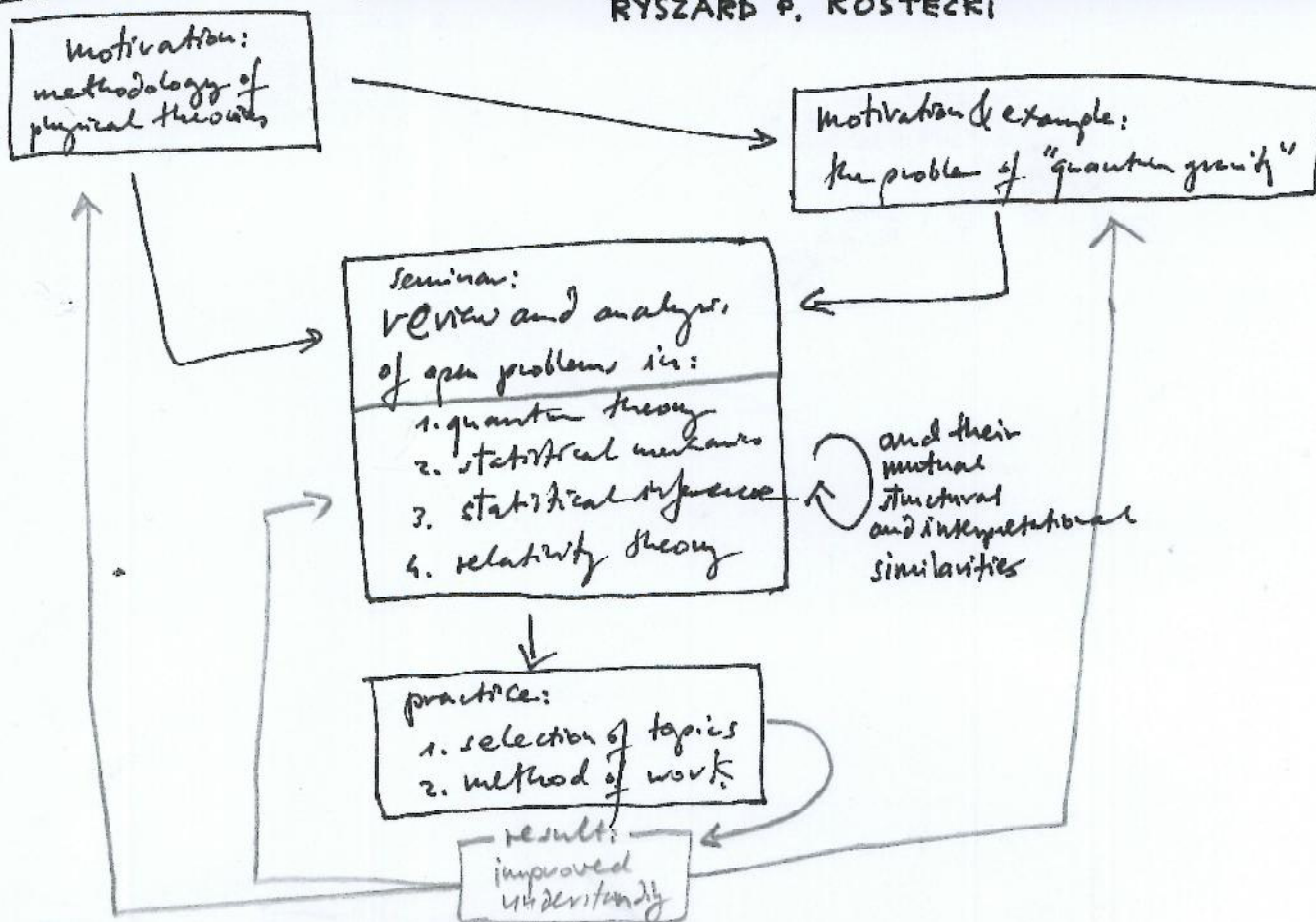 RYSZARD P. KOSTECKI
motivation:
methodology of
physical theories
motivation & example:
the problem of "quantum gravity"
seminar:
review and analysis
of open problems in:
1. quantum theory
2. statistical mechanics
3. statistical inference
4. relativity theory
and their
mutual
structural
and interpretational
similarities
practice:
1. selection of topics
2. method of work
result:
improved
understanding